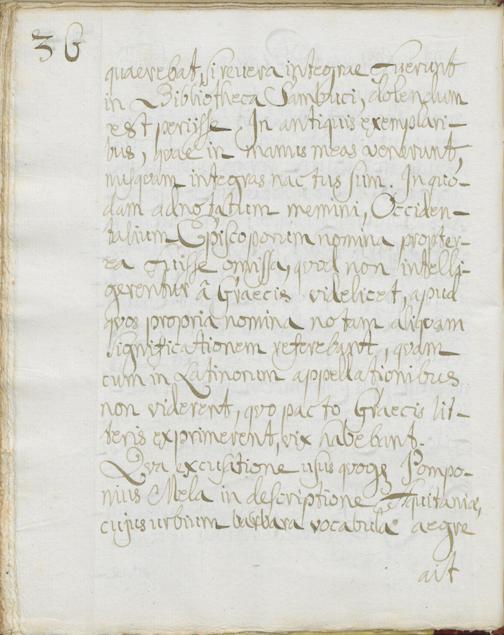 36
quaerebat, si revera integrae fuerunt
in Bibliotheca Sambuci, dolendum
est periisse. In antiquis exemplari-
bus, quae in manus meas venerunt,
nusquam integras nactus sum. In quo-
dam adnotatum memini, Occiden-
talium Episcoporum nomina propter-
ea fuisse omissa, quod non intelli-
gerentur â Graecis videlicet, apud
quos propria nomina notam aliquam
significationem referebant, quam
cum in Latinorum appellationibus
non viderent, quo pacto Graecis lit-
teris exprimerent, vix habebant.
Qua excusatione usus quoqꝫ Pompo-
nius Mela in descriptione Aquitaniae,
cujus urbium barbara vocabula aegre
ait